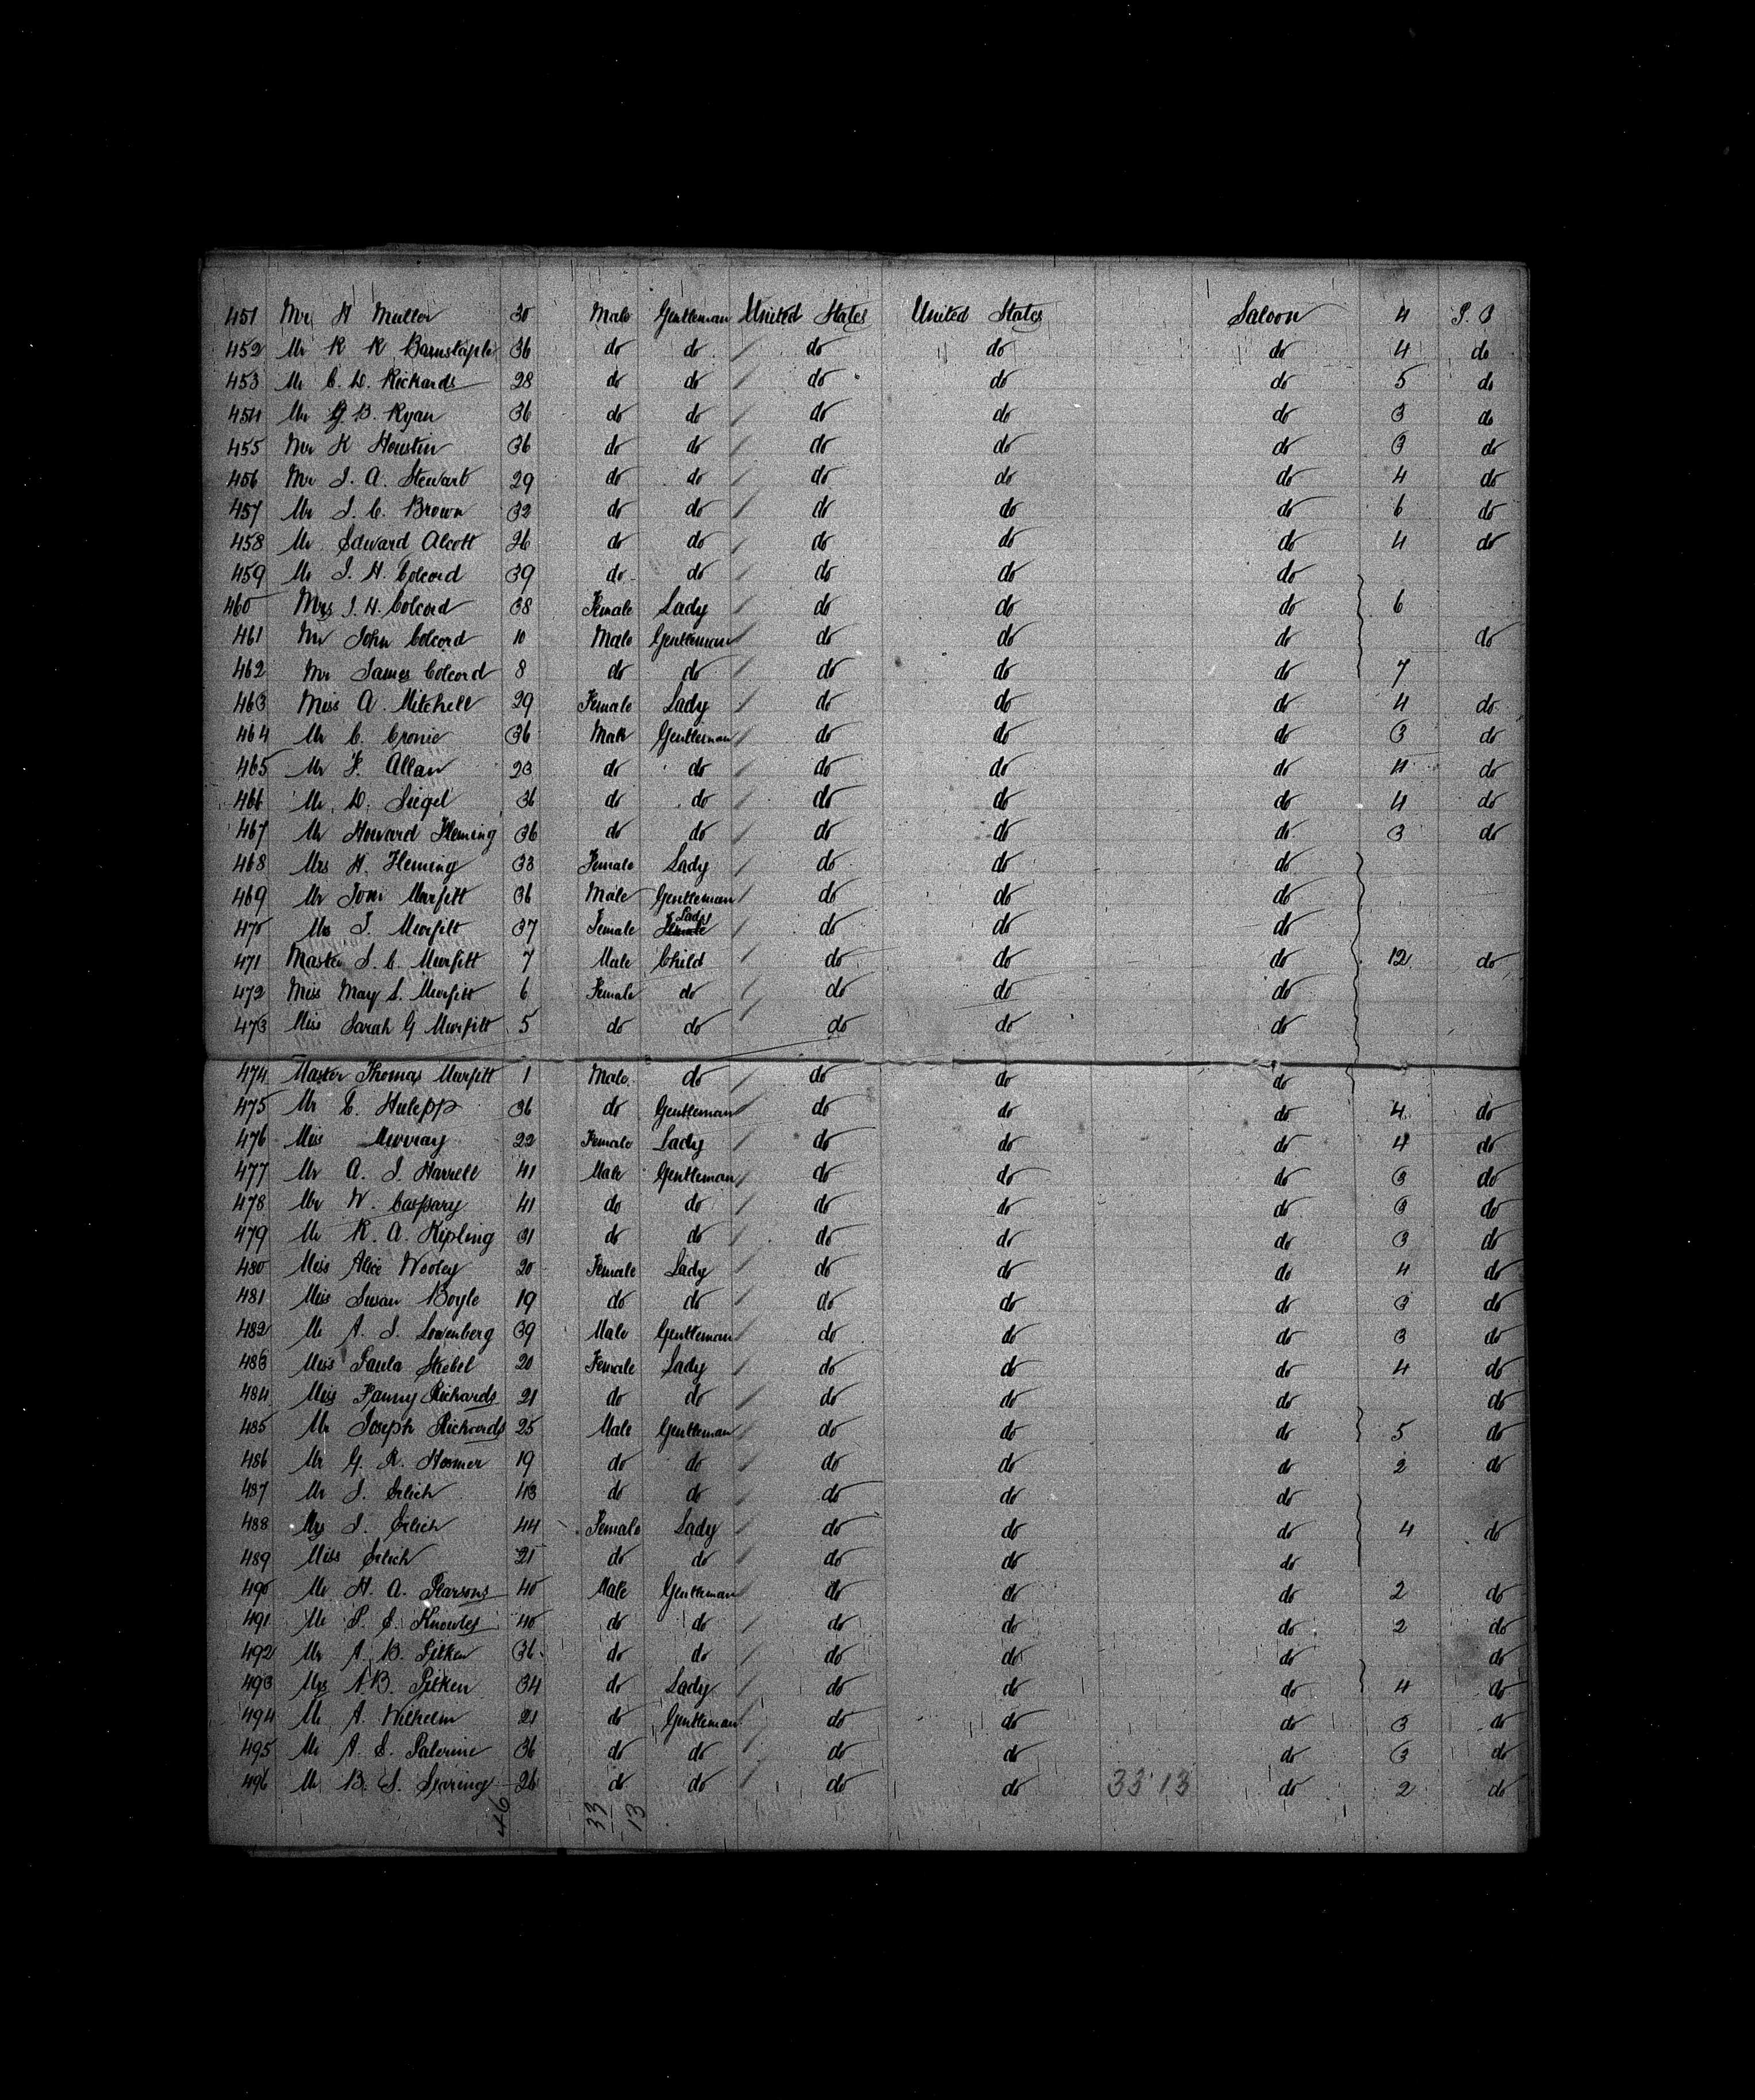 451 Mr H Muller 30 Male Gentleman United States United States Saloon 4 P. P
452 Mr R R Barnstaple 36 do do do do do 4 do
453 Mr C. D. Richards 28 do do do do do 5 do
454 Mr G. B. Ryan 36 do do do do do 3 do
455 Mr R Houstin 36 do do do do do 3 do
456 Mr J. A. Stewart 29 do do do do do 4 do
457 Mr J. C. Brown 32 do do do do do 6 do
458 Mr Edward Alcott 26 do do do do do 4 do
459 Mr J. H. Colcord 39 do do do do do
460 Mrs J. H. Colcord 38 Female Lady do do do 6
461 Mr John Colcord 10 Male Gentleman do do do do
462 Mr James Colcord 8 do do do do do 7
463 Miss A. Mitchell 29 Female Lady do do do 4 do
464 Mr C. Cronie 36 Male Gentleman do do do 3 do
465 Mr F. Allan 23 do do do do do 4 do
466 Mr D. Siegel 36 do do do do do 4 do
467 Mr Howard Fleming 36 do do do do do 3 do
468 Mrs H. Fleming 33 Female Lady do do do
469 Mr Tom Murfitt 36 Male Gentleman do do do
470 Mrs T. Murfitt 37 Female Lady do do do
471 Master J. C. Murfitt 7 Male Child do do do 12 do
472 Miss May S. Murfitt 6 Female do do do do
473 Miss Sarah G Murfitt 5 do do do do do
474 Master Thomas Murfitt 1 Male do do do do
475 Mr C. Hulepp 36 do Gentleman do do do 4 do
476 Miss Murray 22 Female Lady do do do 4 do
477 Mr A. J. Harrell 41 Male Gentleman do do do 3 do
478 Mr W. Caspary 41 do do do do do 3 do
479 Mr R. A. Kipling 31 do do do do do 3 do
480 Miss Alice Wooley 20 Female Lady do do do 4 do
481 Miss Susan Boyle 19 do do do do do 3 do
482 Mr A. J. Lowenberg 39 Male Gentleman do do do 3 do
483 Miss Paula Strebel 20 Female Lady do do do 4 do
484 Miss Fanny Richards 21 do do do do do do
485 Mr Joseph Richards 25 Male Gentleman do do do 5 do
486 Mr G. R. Hosmer 19 do do do do do 2 do
487 Mr J. Erlich 43 do do do do do
488 Mrs J. Erlich 44 Female Lady do do do 4 do
489 Miss Erlich 21 do do do do do
490 Mr H. A. Parsons 40 Male Gentleman do do do 2 do
491 Mr S. E. Knowles 40 do do do do do 2 do
492 Mr A. B. Pitken 36 do do do do do do
493 Mrs A B. Pitken 34 do Lady do do do 4 do
494 Mr A. Wilhelm 21 do Gentleman do do do 3 do
495 Mr A. E. Palerine 36 do do do do do 3 do
496 Mr B. S. Searing 26 do do do do 33 13 do 2 do
46 33 13